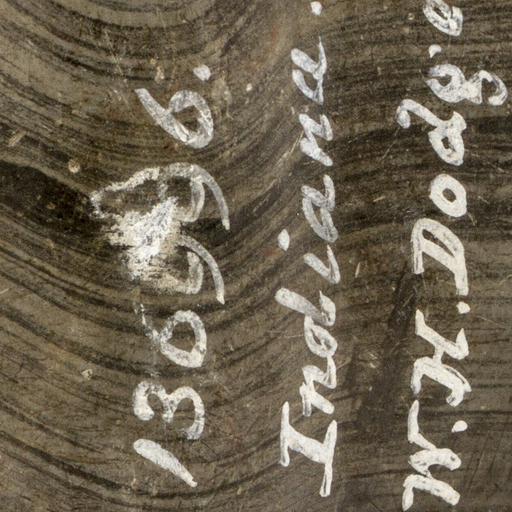 130996.
Indiana.
W. H. Dodge.